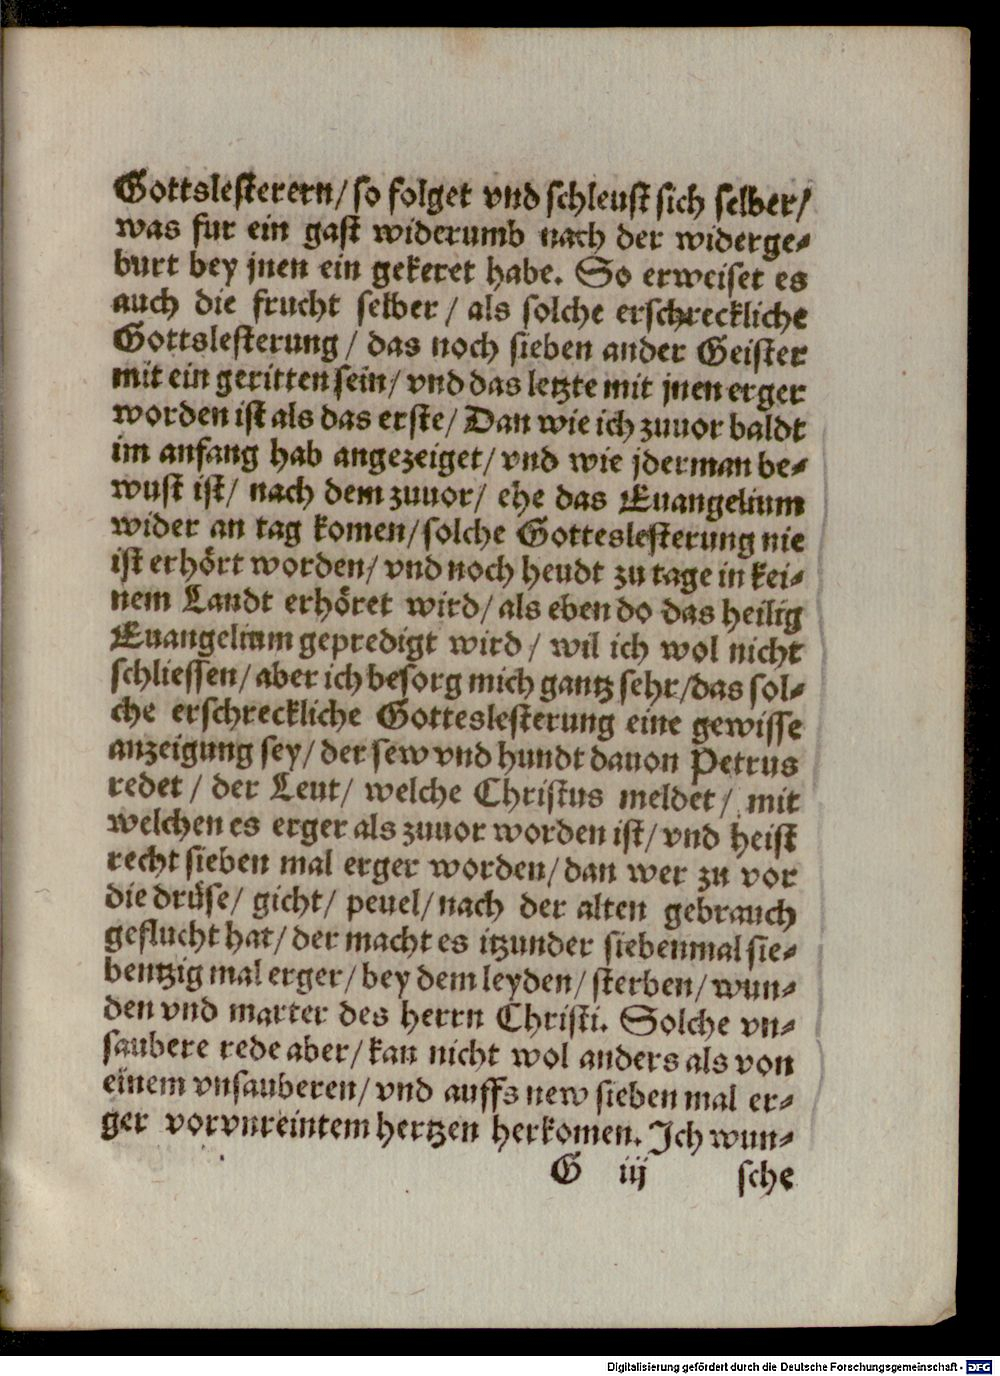 Gottslesterern/ so folget vnd schleust sich selber/
was fur ein gast widerumb nach der widerge-
burt bey jnen ein gekeret habe. So erweiset es
auch die frucht selber/ als solche erschreckliche
Gottslesterung/ das noch sieben ander Geister
mit ein geritten sein/ vnd das letzte mit jnen erger
worden ist als das erste/ Dan wie ich zuuor baldt
im anfang hab angezeiget/ vnd wie jderman be-
wust ist/ nach dem zuuor/ ehe das Euangelium
wider an tag komen/ solche Gotteslesterung nie
ist erhört worden/ vnd noch heudt zu tage in kei-
nem Landt erhöret wird/ als eben do das heilig
Euangelium gepredigt wird/ wil ich wol nicht
schliessen/ aber ich besorg mich gantz sehr/ das sol-
che erschreckliche Gotteslesterung eine gewisse
anzeigung sey/ der sew vnd hundt dauon Petrus
redet/ der Leut/ welche Christus meldet/ mit
welchen es erger als zuuor worden ist/ vnd heist
recht sieben mal erger worden/ dan wer zu vor
die drüse/ gicht/ peuel/ nach der alten gebrauch
geflucht hat/ der macht es itzunder siebenmal sie-
bentzig mal erger/ bey dem leyden/ sterben/ wun-
den vnd marter des herrn Christi. Solche vn-
saubere rede aber/ kan nicht wol anders als von
einem vnsauberen/ vnd auffs new sieben mal er-
ger vorvnreintem hertzen herkomen. Ich wun-
G iij sche
Digitalisierung gefördert durch die Deutsche Forschungsgemeinschaft - DFG